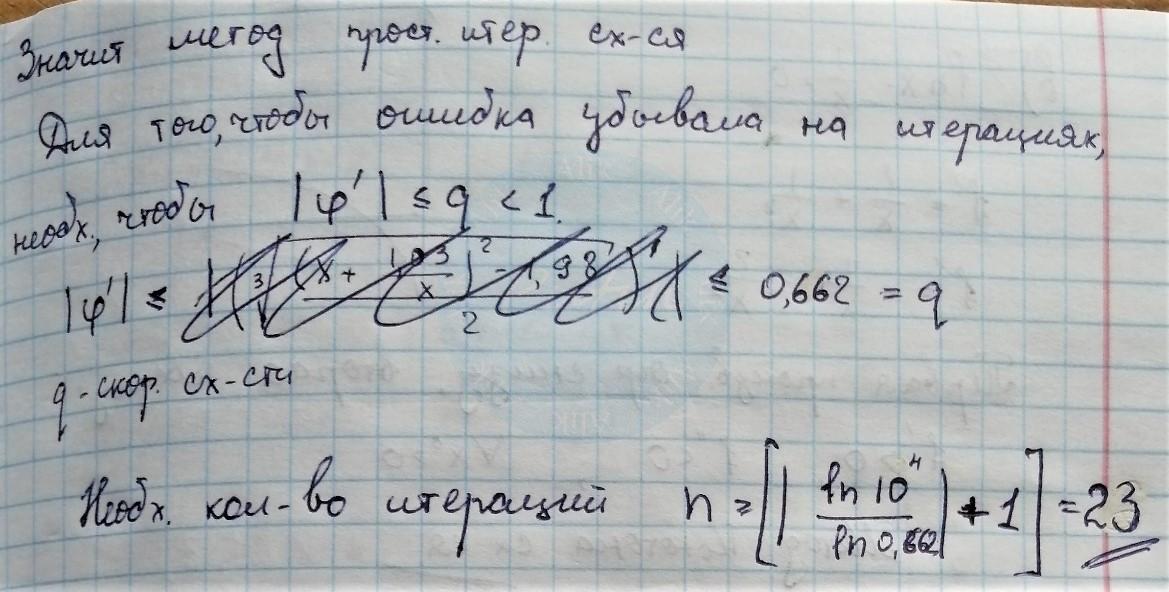 Значит метод прост. итер. сх-ся
Для того, чтобы ошибка убывала на итерациях,
необх., чтобы |φ'| ≤ q < 1.
|φ'| ≤ ≤ 0,662 = q
q - скор. сх-сти
Необх. кол-во итераций n ≥ [| ln 10⁴ / ln 0,662 | + 1] = 23